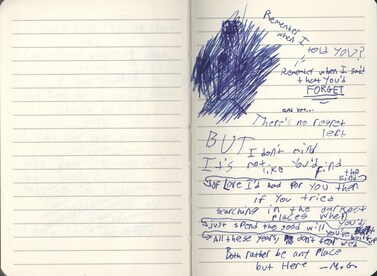 Remember
when I
told YOU?
"Remember when I said
that You'd
FORGET
and yet...
There's no regret
left
BUT I don't mind
It's not like You'd find
the kind
of Love I'd had for You then
if You tried
searching in the darkest
places when
just spend the good will
You've
All these years, don't
Both rather be any Place
but Here —M.G.